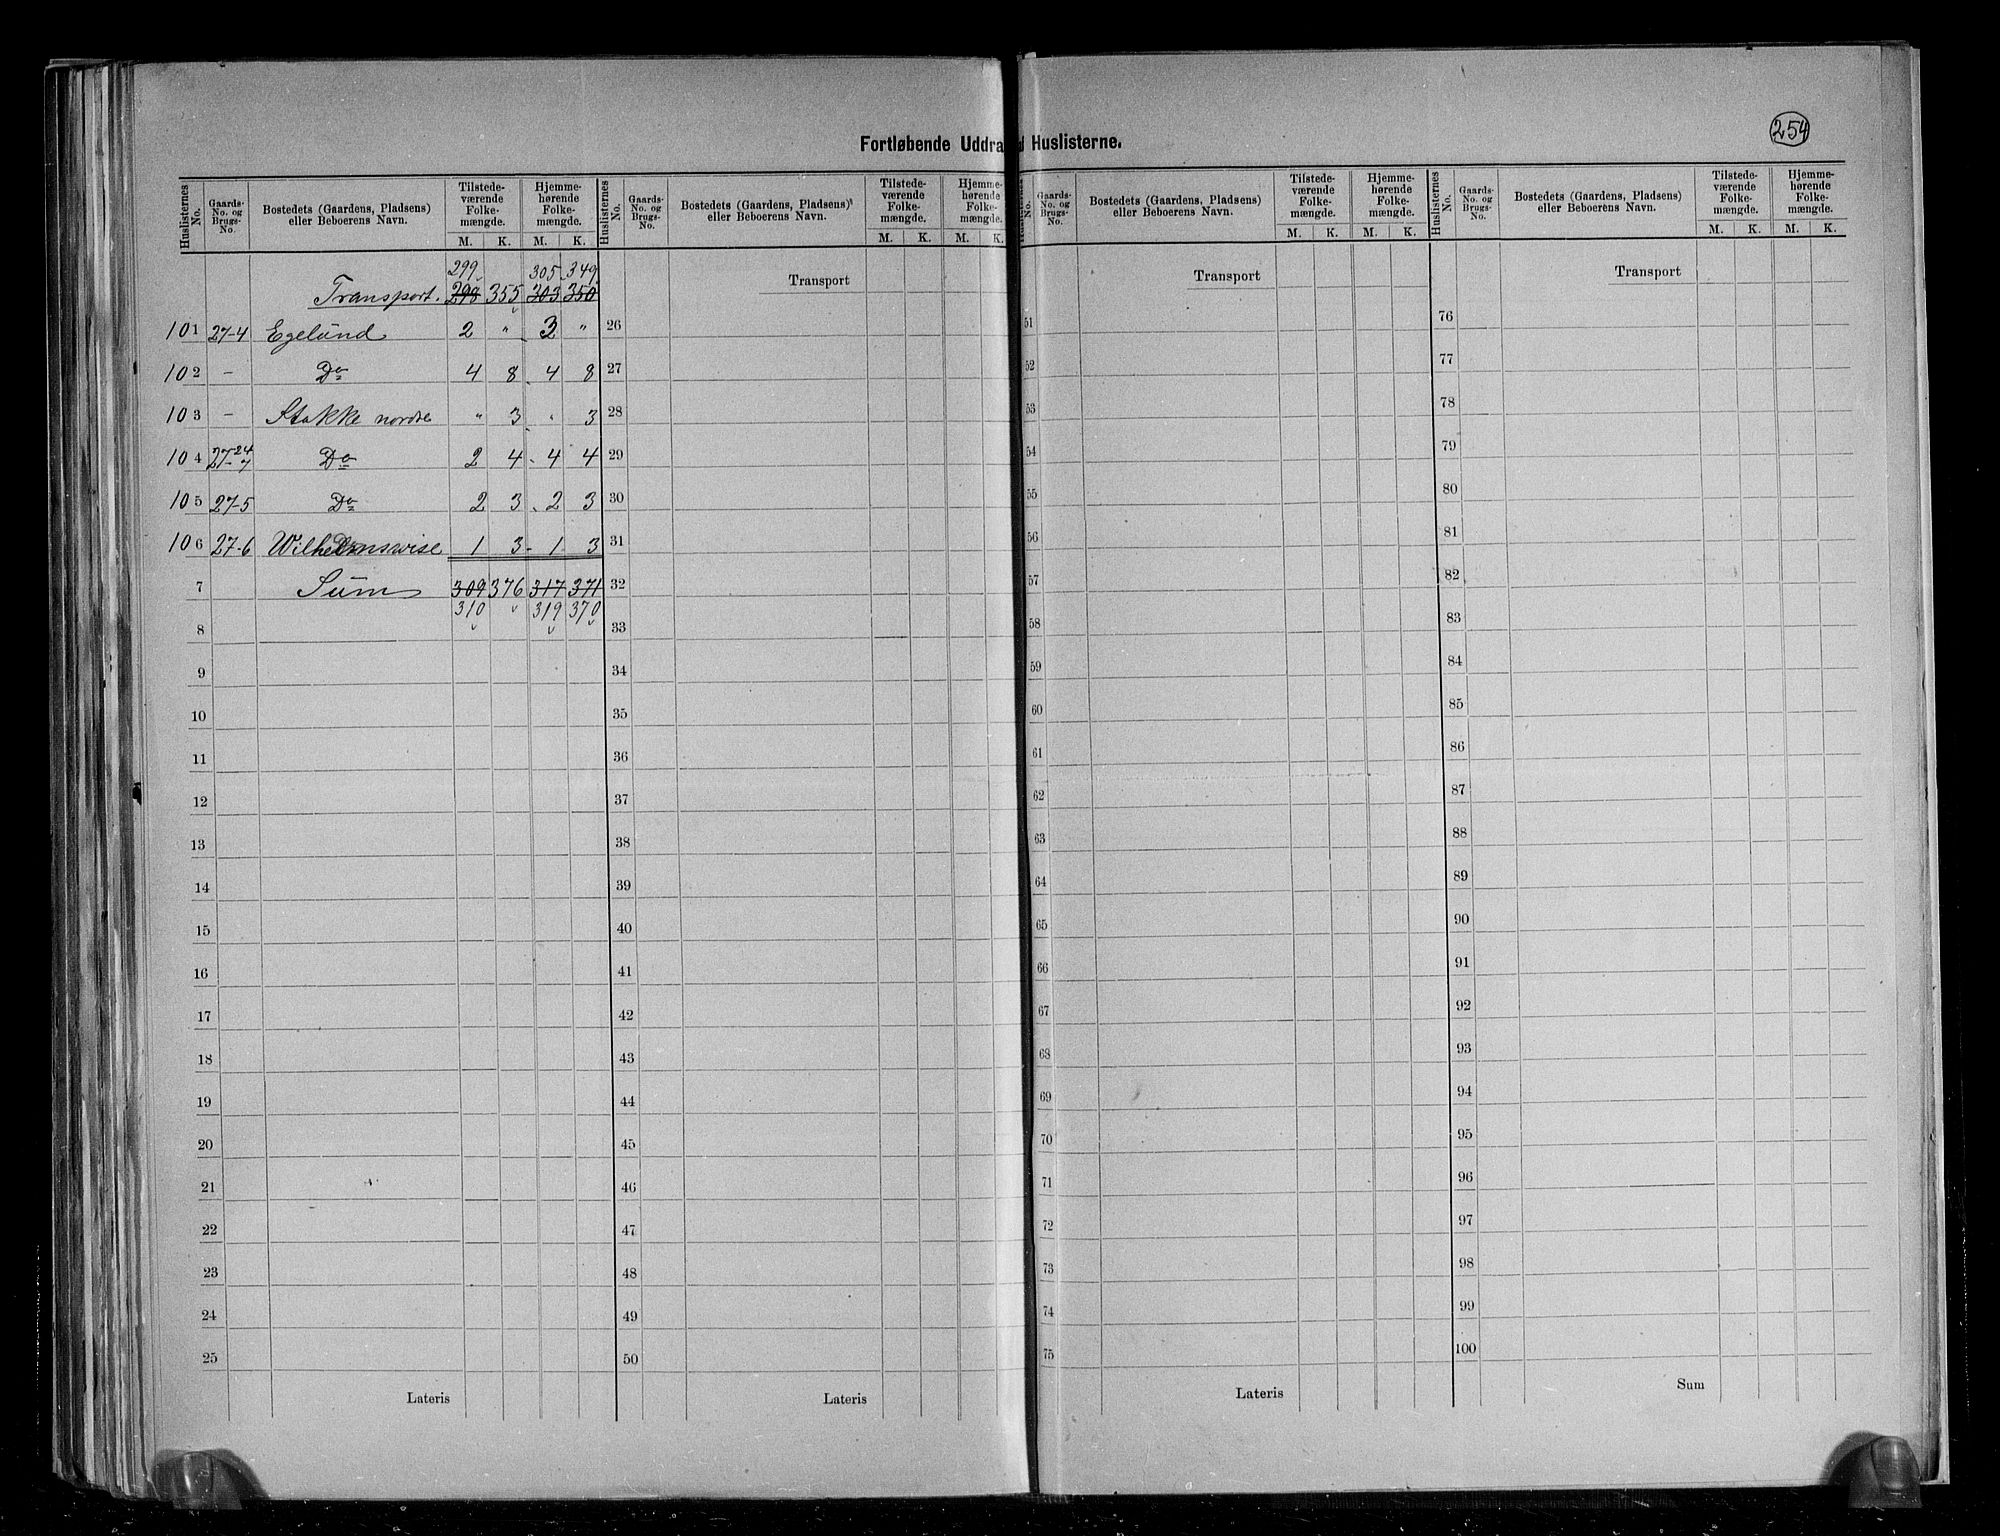 254
Fortløbende Uddra Huslisterne.
Huslisternes No. Gaards-No. og Brugs-No. Bostedets (Gaardens, Pladsens) eller Beboerens Navn. Tilstedeværende Folkemængde. Hjemmehørende Folkemængde.
M. K. M. K.
299 305 349
Transport. 298 355 303 350
101 27-4 Egelund 2 " 3 "
102 - Do 4 8 4 8
103 - Stakke nordre " 3 " 3
104 27-24 7 Do 2 4 4 4
105 27-5 Do 2 3 2 3
106 27-6 Wilhelmswise 1 3 1 3
7 Sum 309 376 317 371
310 319 370
8
9
10
11
12
13
14
15
16
17
18
19
20
21
22
23
24
25
Lateris
Huslisternes No. Gaards-No. og Brugs-No. Bostedets (Gaardens, Pladsens) eller Beboerens Navn. Tilstedeværende Folkemængde. Hjemmehørende Folkemængde.
M. K. M. K.
Transport
26
27
28
29
30
31
32
33
34
35
36
37
38
39
40
41
42
43
44
45
46
47
48
49
50
Lateris
Huslisternes No. Gaards-No. og Brugs-No. Bostedets (Gaardens, Pladsens) eller Beboerens Navn. Tilstedeværende Folkemængde. Hjemmehørende Folkemængde.
M. K. M. K.
Transport
51
52
53
54
55
56
57
58
59
60
61
62
63
64
65
66
67
68
69
70
71
72
73
74
75
Lateris
Huslisternes No. Gaards-No. og Brugs-No. Bostedets (Gaardens, Pladsens) eller Beboerens Navn. Tilstedeværende Folkemængde. Hjemmehørende Folkemængde.
M. K. M. K.
Transport
76
77
78
79
80
81
82
83
84
85
86
87
88
89
90
91
92
93
94
95
96
97
98
99
100
Sum